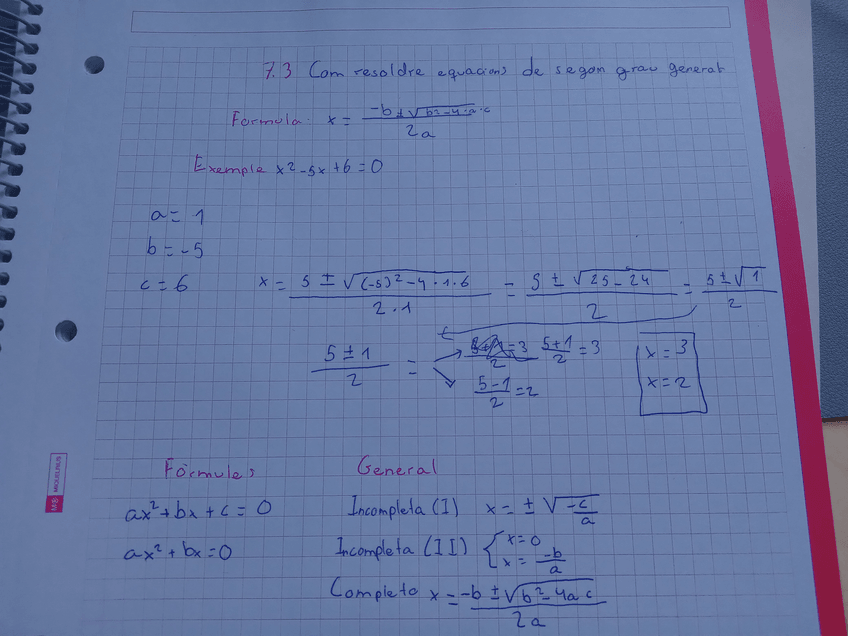 7.3 Com resoldre equacions de segon grau general
Formula: x = (-b ± √(b² - 4·a·c)) / 2a
Exemple x² - 5x + 6 = 0
a = 1
b = -5
c = 6
x = (5 ± √((-5)² - 4·1·6)) / (2·1) = (5 ± √(25 - 24)) / 2 = (5 ± √1) / 2
(5 ± 1) / 2 =
(5+1)/2 = 3
(5-1)/2 = 2
x = 3
x = 2
Fórmules General
ax² + bx + c = 0 Incompleta (I) x = ± √(-c/a)
ax² + bx = 0 Incompleta (II) { x = 0
x = -b/a
Completo x = (-b ± √(b² - 4ac)) / 2a
MIQUELRIUS